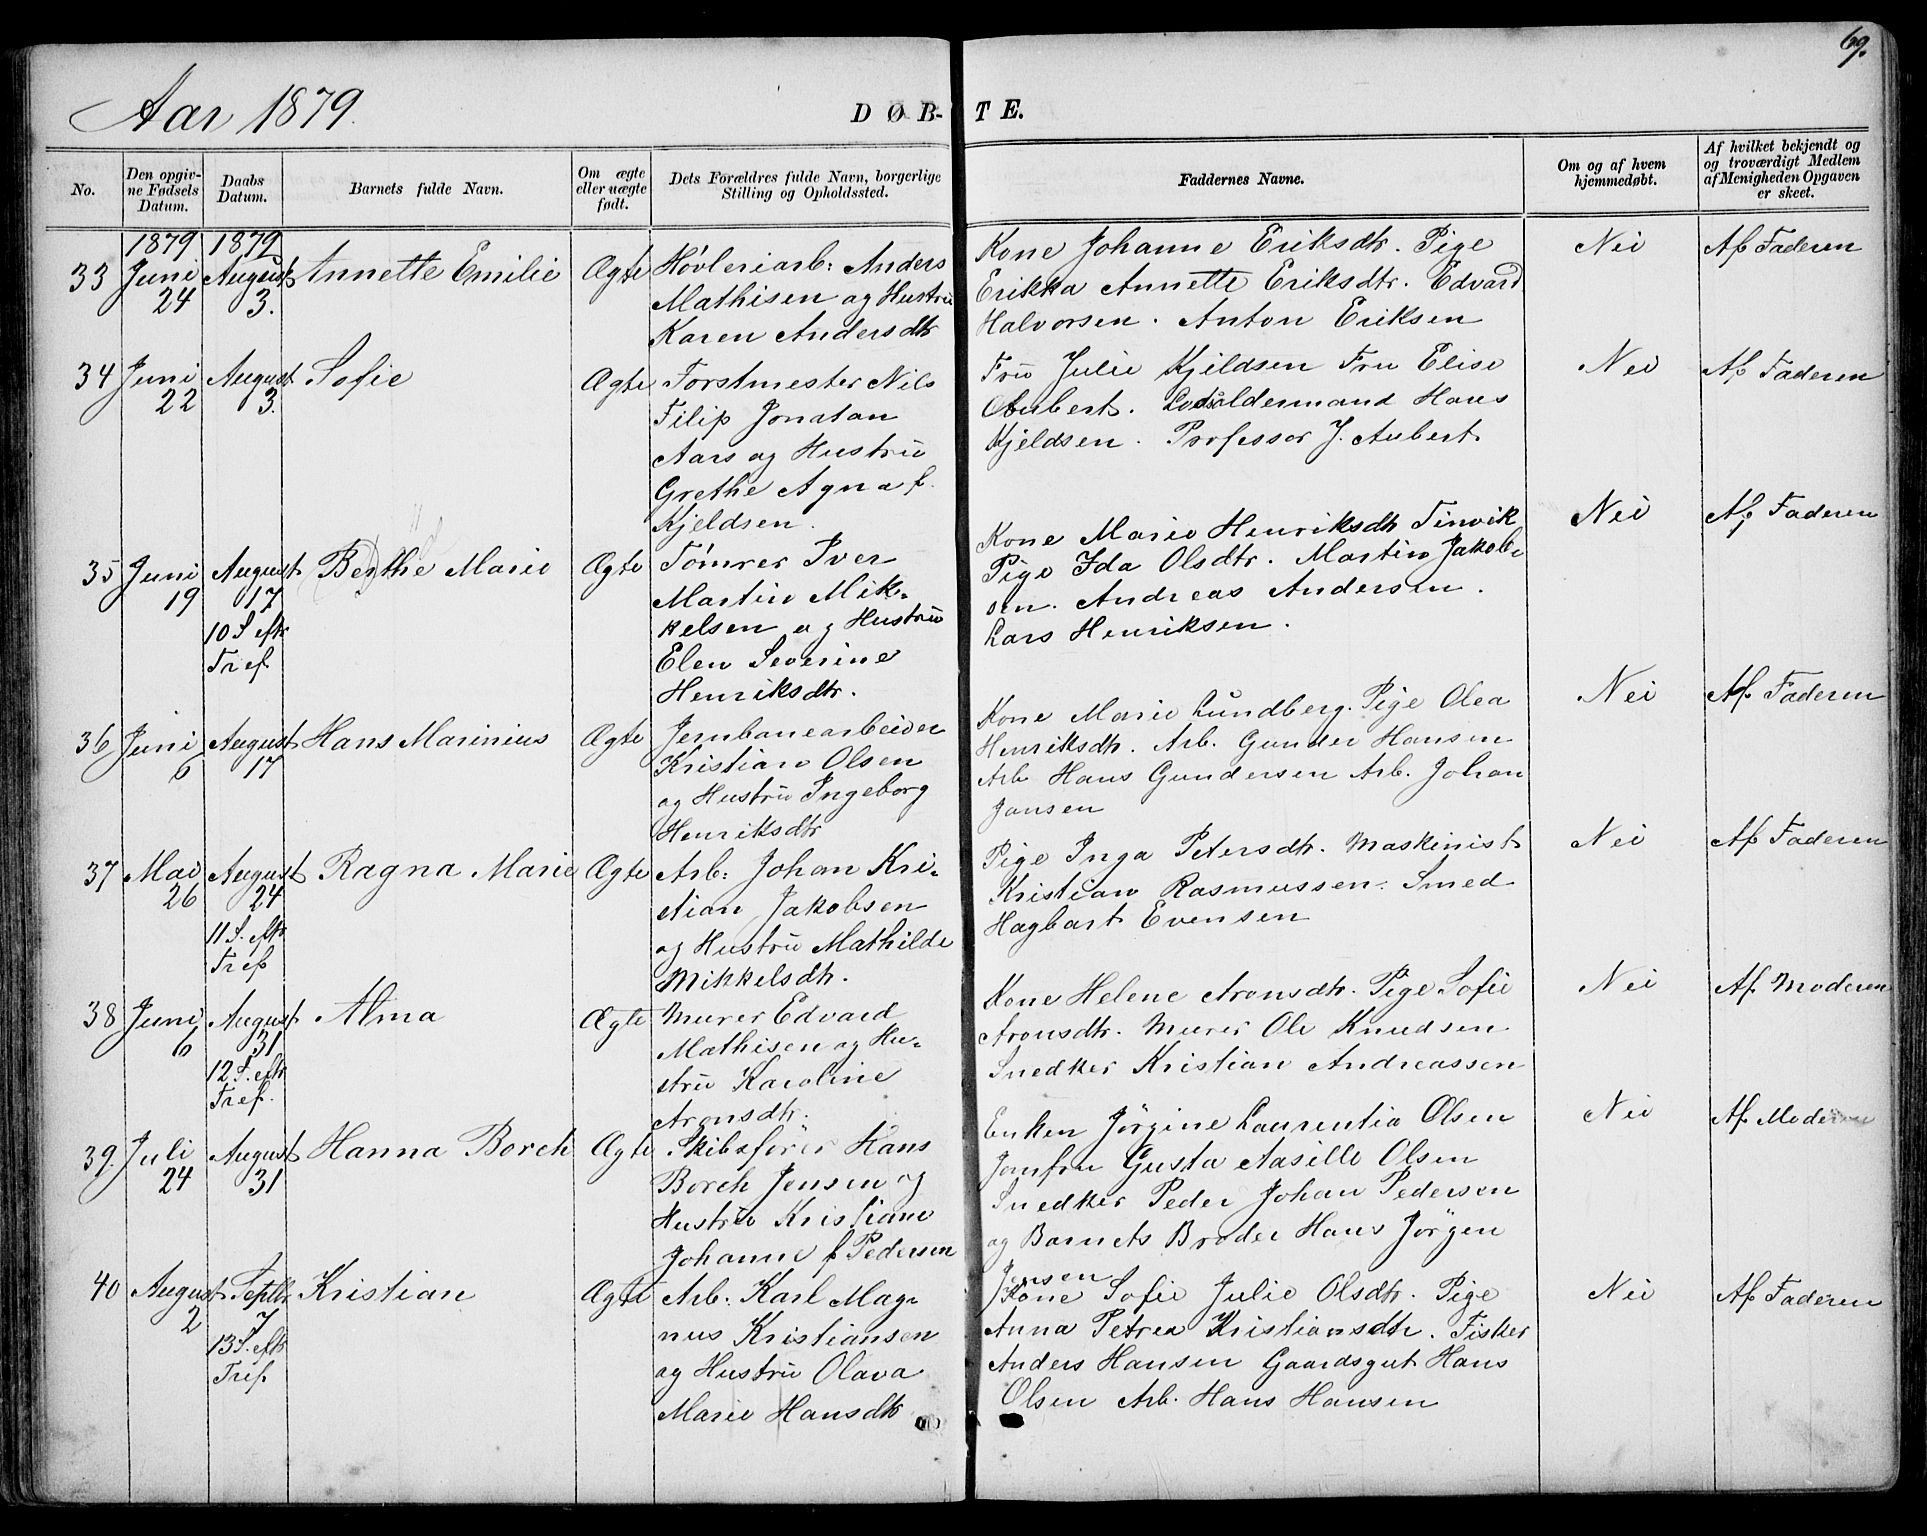 69.
Aar 1879.
DØB- TE.
No.
Den opgiv-
ne Fødsels
Datum.
Daabs
Datum.
Barnets fulde Navn.
Om ægte
eller uægte
født.
Dets Forældres fulde Navn, borgerlige
Stilling og Opholdssted.
Faddernes Navne.
Om og af hvem
hjemmedøbt.
Af hvilket bekjendt og
og troværdigt Medlem
af Menigheden Opgaven
er skeet.
1879 1879
33 Juni 24 August 3. Annette Emilie Ægte
Høvleriarb: Anders
Mathisen og Hustru
Karen Andersdtr
Kone Johanne Eriksdtr. Pige
Erikka Annette Eriksdtr. Edvard
Halvorsen. Anton Eriksen
Nei
Af Faderen
34 Juni 22 August 3. Sofie Ægte
Forstmester Nils
Filip Jonatan
Aars og Hustru
Grethe Agna f.
Kjeldsen.
Fru Julie Kjeldsen Fru Elise
Aubert. Lodsoldermand Hans
Kjeldsen. Professor J. Aubert
Nei
Af Faderen
35 Juni 19 August 17 Berthe Marie Ægte
10 S. eftr
Tref
Tømrer Iver
Martin Mik-
kelsen og Hustru
Elen Severine
Henriksdtr.
Kone Marie Henriksdtr Tinvik
Pige Ida Olsdtr. Martin Jakob-
sen. Andreas Andersen.
Lars Henriksen.
Nei
Af Faderen
36 Juni 6 August 17 Hans Marinius Ægte
Jernbanearbeider
Kristian Olsen
og Hustru Ingeborg
Henriksdtr
Kone Marie Lundberg. Pige Olea
Henriksdtr. Arb. Gunder Hansen
Arb Hans Gundersen Arb. Johan
Jansen
Nei
Af Faderen
37 Mai 26 August 24 Ragna Marie Ægte
11 S. eftr
Tref
Arb: Johan Kri-
stian Jakobsen
og Hustru Mathilde
Mikkelsdtr.
Pige Inga Petersdtr. Maskinist
Kristian Rasmussen. Smed
Hagbart Evensen
Nei
Af Faderen
38 Juni 6 August 31 Alma Ægte
12 S. eftr
Tref.
Murer Edvard
Mathisen og Hu-
stru Karoline
Aronsdtr.
Kone Helene Aronsdtr. Pige Sofie
Aronsdtr. Murer Ole Knudsen
Snedker Kristian Andreassen
Nei
Af Moderen
39. Juli 24 August 31 Hanna Borch Ægte
Skibsfører Hans
Borch Jensen og
Hustru Kristiane
Johanne f Pedersen
Enken Jørgine Laurentia Olsen
Jomfru Gusta Aasille Olsen
Snedker Peder Johan Pedersen
og Barnets Broder Hans Jørgen
Jensen
Nei
Af Moderen
40 August 2 Septbr 7 Kristian Ægte
13 S. eftr
Tref.
Arb: Karl Mag-
nus Kristiansen
og Hustru Olava
Marie Hansdtr
Kone Sofie Julie Olsdtr. Pige
Anna Petrea Kristiansdtr. Fisker
Anders Hansen Gaardsgut Hans
Olsen Arb. Hans Hansen
Nei
Af Faderen